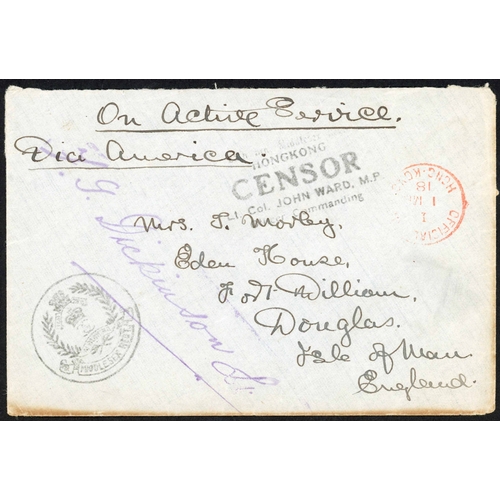 On Active Service.
Via America.
HONGKONG
CENSOR
Lt. Col. JOHN WARD. M.P.
Commanding
OFFICIAL
HONG-KONG
1 M
18
Dickinson Lt.
Mrs. T. Morley,
Eden House,
Fort William,
Douglas.
Isle of Man.
England.
MIDDLESEX REGT